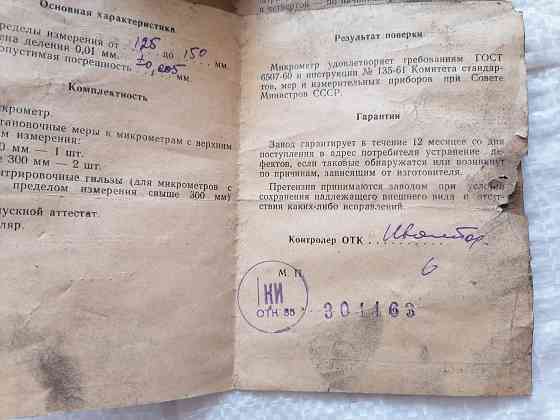 Основная характеристика
ределы измерения от 125 до 150 мм.
ена деления 0,01 мм.
опустимая погрешность ±0,005 мм.
Комплектность
крометр.
тановочные меры к микрометрам с верхним
м измерения:
0 мм — 1 шт.
300 мм — 2 шт.
нтрировочные гильзы (для микрометров с
пределом измерения свыше 300 мм)
ускной аттестат.
ляр.
и четвертой — по
Результат поверки
Микрометр удовлетворяет требованиям ГОСТ
6507-60 и инструкции № 135-61 Комитета стандар-
тов, мер и измерительных приборов при Совете
Министров СССР.
Гарантии
Завод гарантирует в течение 12 месяцев со дня
поступления в адрес потребителя устранение де-
фектов, если таковые обнаружатся или возникнут
по причинам, зависящим от изготовителя.
Претензии принимаются заводом при услови
сохранения надлежащего внешнего вида и отсут-
ствия каких-либо исправлений.
Контролер ОТК
6
М П
КИ
ОТК 35
301163